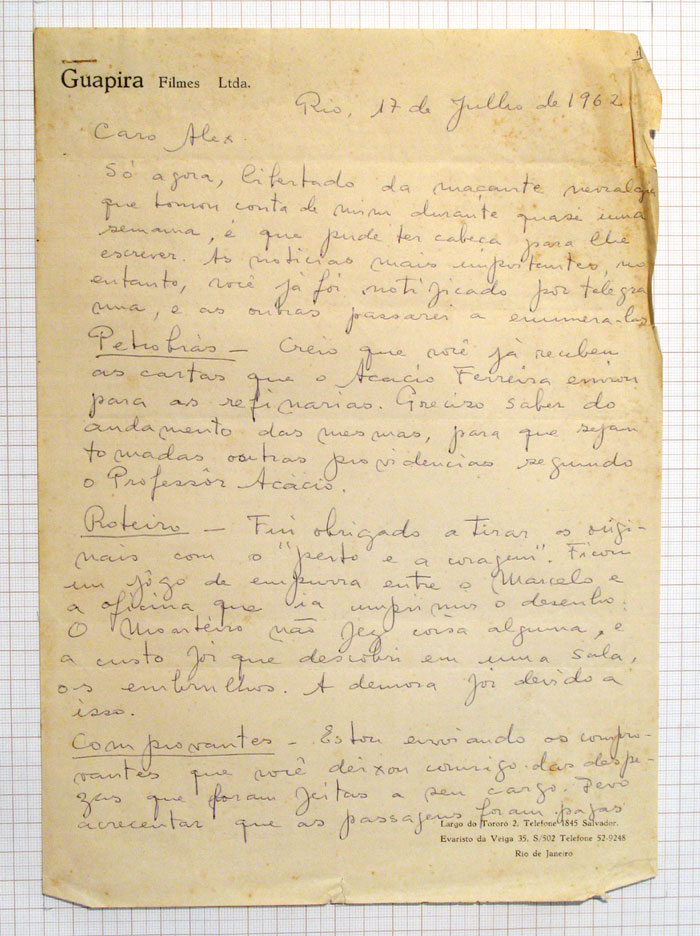 1
Guapira Filmes Ltda.
Rio, 17 de Julho de 1962
Caro Alex.
Só agora, libertado da maçante nevralgia
que tomou conta de mim durante quase uma
semana, é que pude ter cabeça para lhe
escrever. As notícias mais importantes, no
entanto, você já foi notificado por telegra
ma, e as outras passarei a enumera-las
Petrobrás — Creio que você já recebeu
as cartas que o Acacio Ferreira enviou
para as refinarias. Preciso saber do
andamento das mesmas, para que sejam
tomadas outras providencias segundo
o Professôr Acácio.
Roteiro — Fui obrigado a tirar os origi-
nais com o "peito e a coragem". Ficou
um jôgo de empurra entre o Marcelo e
a oficina que ia imprimir o desenho.
O Monteiro não fez coisa alguma, e
a custo foi que descobri em uma sala,
os embrulhos. A demora foi devido a
isso.
Comprovantes — Estou enviando os compro-
vantes que você deixou comigo das despe-
zas que foram feitas a seu cargo. Devo
acrecentar que as passagens foram pagas
Largo do Tororó 2. Telefone 1845 Salvador.
Evaristo da Veiga 35, S/502 Telefone 52-9248
Rio de Janeiro